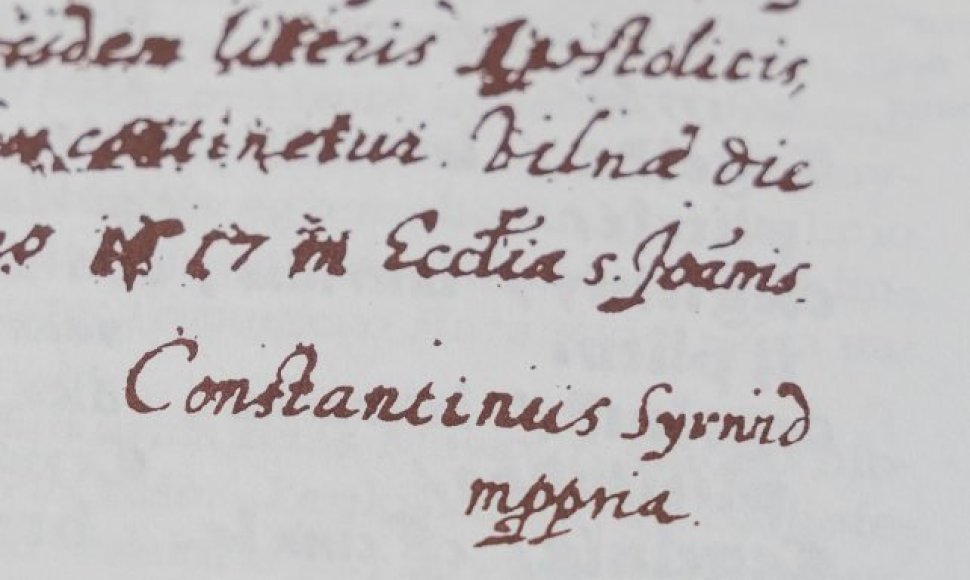 literis Apostolicis,
continetur. Vilnæ die
17 in Eccl̃ia s. Joãnis.
Constantinus Syrwid
mppria.